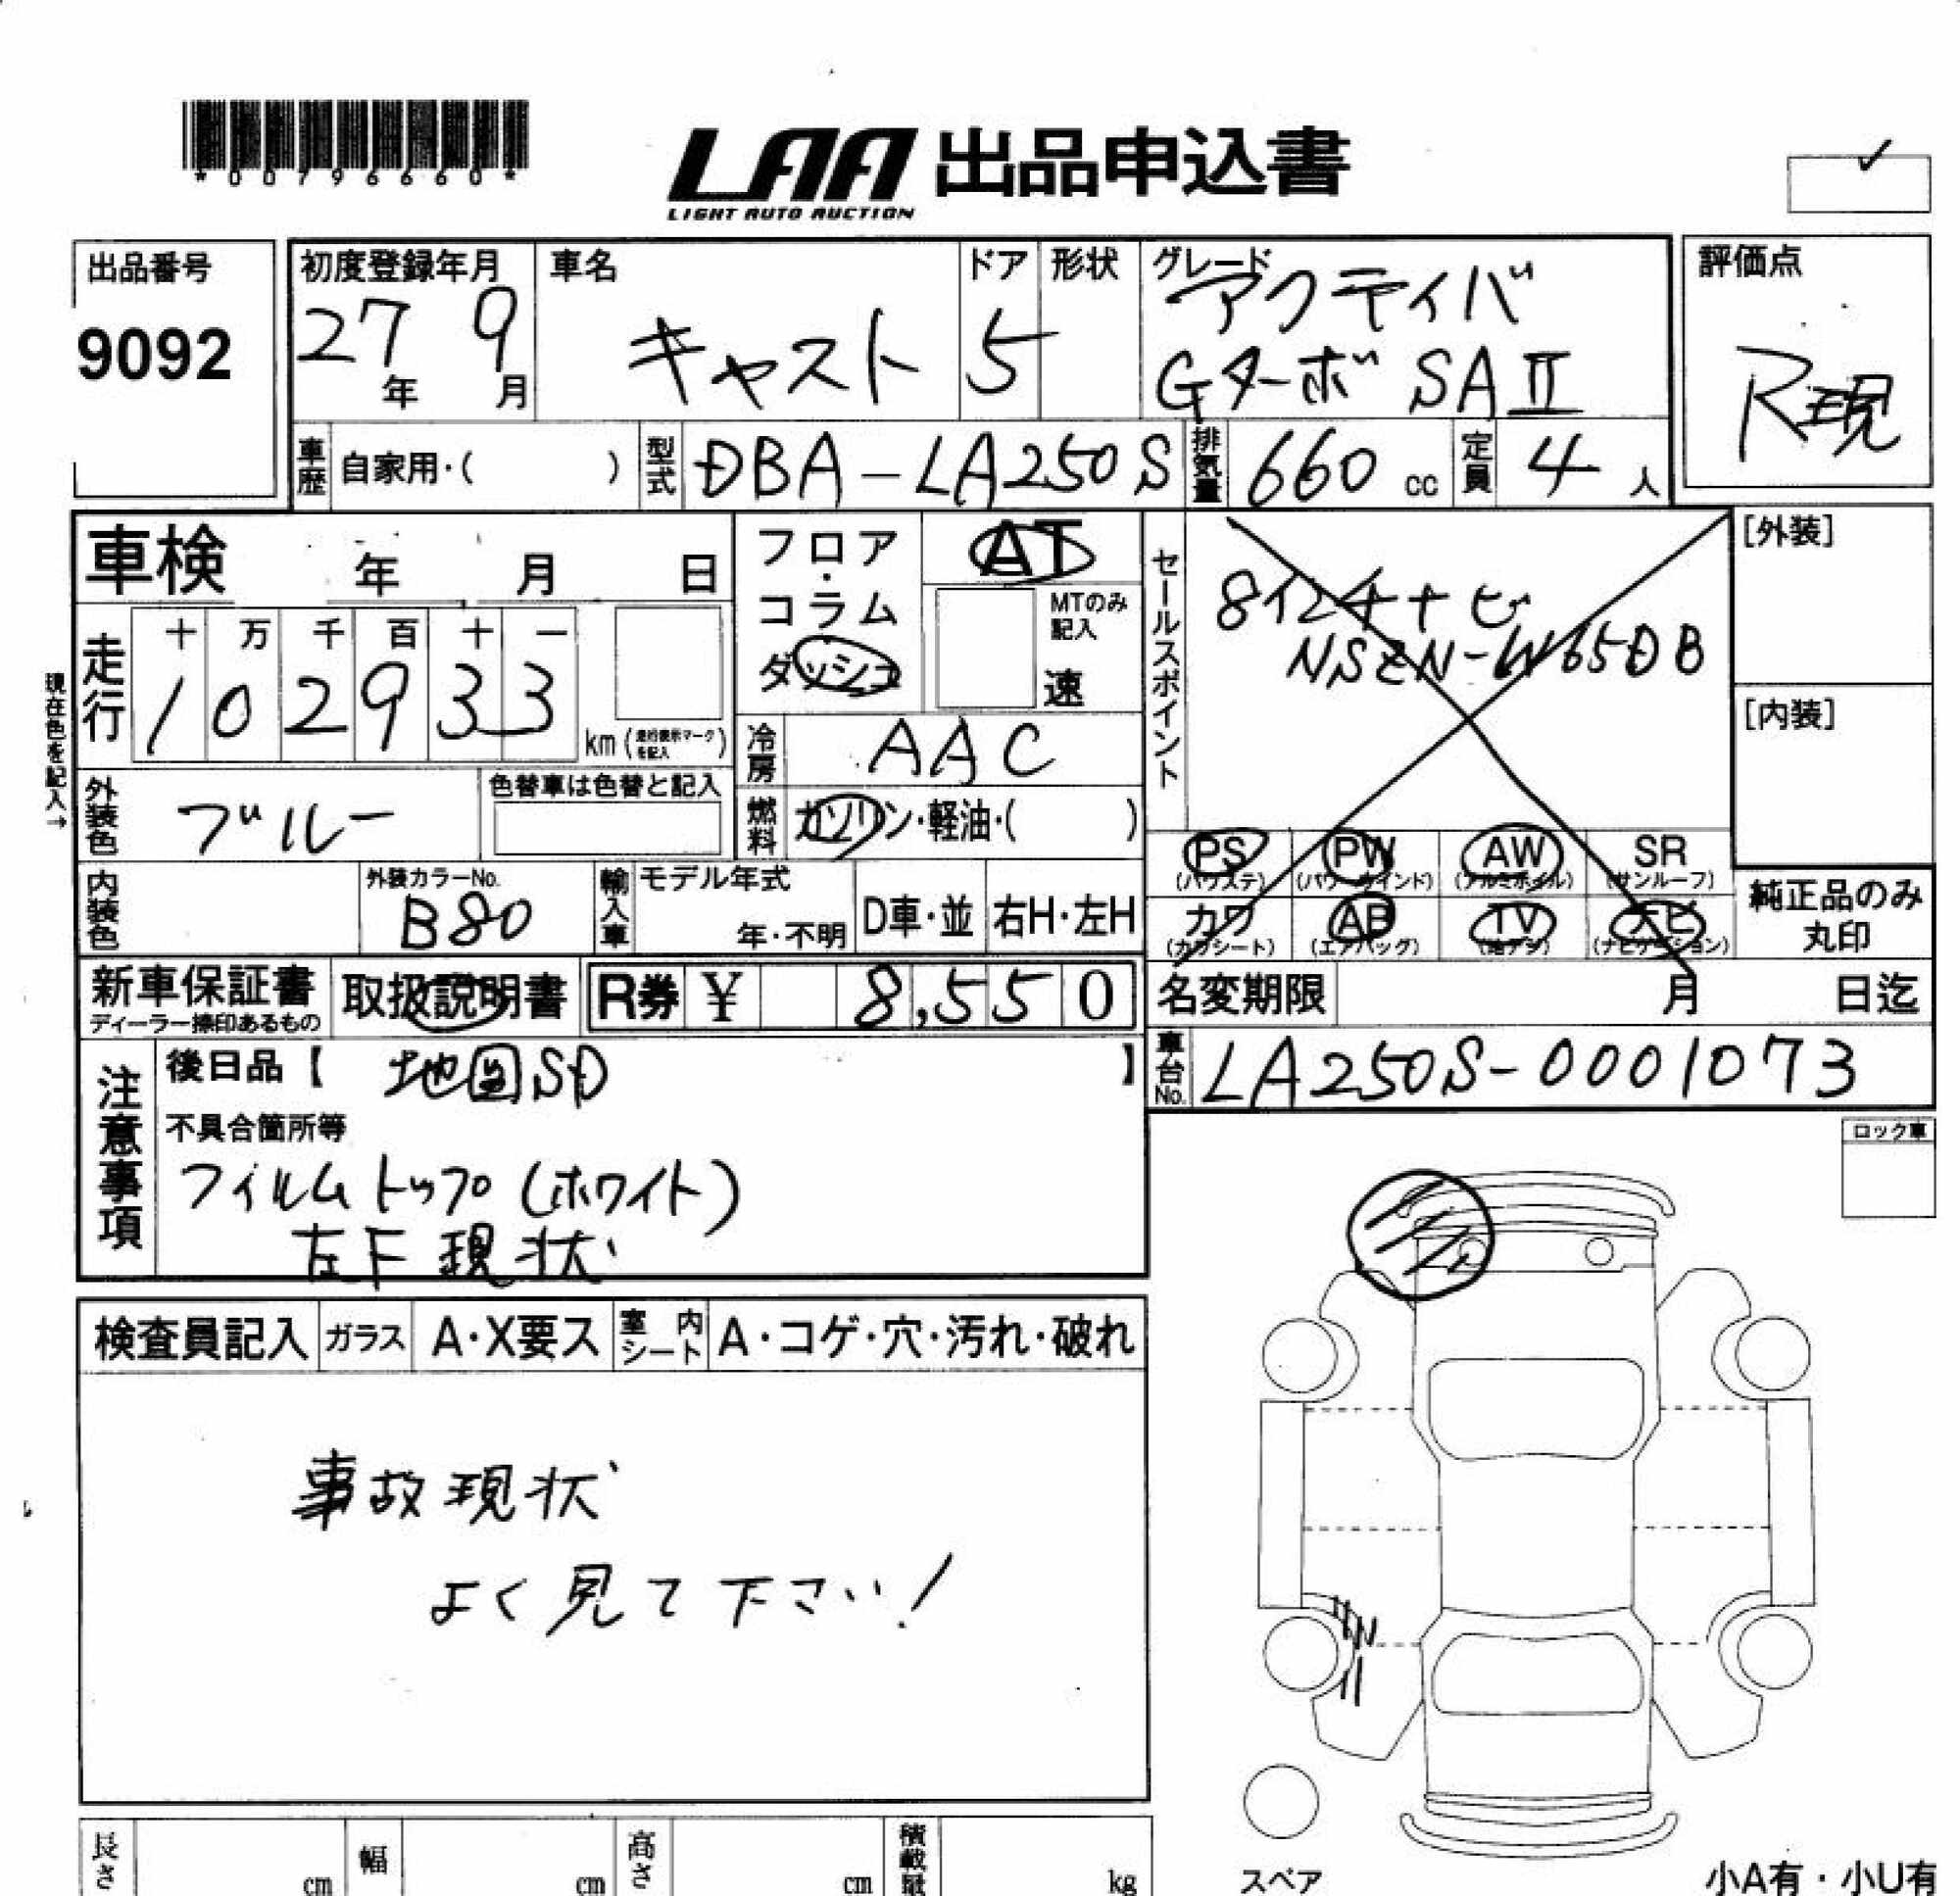 *00796660*
LAA 出品申込書
LIGHT AUTO AUCTION
出品番号
9092
初度登録年月
27年 9月
車名
キャスト
ドア
5
形状
グレード
アクティバ
Gターボ SAⅡ
評価点
R現
車歴 自家用・( )
型式 DBA-LA250S
排気量 660 cc
定員 4人
車検 年 月 日
フロア・コラム
ダッシュ
AT
MTのみ記入
速
セールスポイント
8インチナビ
NSZN-W65DB
[外装]
[内装]
現在色を記入→
走行
十 万 千 百 十 一
102933
km (走行表示マークを記入)
冷房 AAC
外装色 ブルー
色替車は色替と記入
燃料 ガソリン・軽油・( )
PS (パワステ)
PW (パワーウインド)
AW (アルミホイル)
SR (サンルーフ)
カワ (カワシート)
AB (エアバッグ)
TV (地デジ)
ナビ (ナビゲーション)
純正品のみ丸印
内装色
外装カラーNo.
B80
輸入車
モデル年式
年・不明
D車・並
右H・左H
新車保証書
ディーラー捺印あるもの
取扱説明書
R券 ¥ 8,550
名変期限 月 日迄
車台No. LA250S-0001073
注意事項
後日品【 地図SD 】
不具合箇所等
フィルムトップ(ホワイト)
左F現状
ロック車
検査員記入
ガラス A・X要ス
室内シート A・コゲ・穴・汚れ・破れ
事故現状
よく見て下さい!
長さ cm
幅 cm
高さ cm
積載量 kg
スペア
小A有・小U有